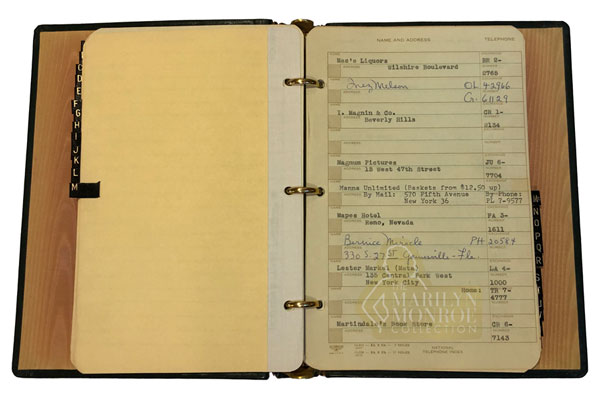 C
D
E
F
G
H
I
J
K
L
M
NAME AND ADDRESS TELEPHONE
Mac's Liquors BR 2-
Wilshire Boulevard
2768
Inez Melson OL 42966
Cr. 61129
I. Magnin & Co. CR 1-
Beverly Hills
5134
Magnum Pictures JU 6-
15 West 47th Street
7704
Menus Unlimited (Baskets from $12.50 up)
By Mail: 570 Fifth Avenue By Phone:
New York 36 PL 7-9577
Mapes Hotel FA 3-
Reno, Nevada
1611
Bernice Miracle PH 20584
330 S. 27 St Gainesville - Fla.
Lester Markel (Home) LA 4-
135 Central Park West
New York City 1000
Home: TR 7-
4777
Martindale's Book Store CR 6-
7143
NATIONAL
TELEPHONE INDEX
N
O
P
Q
R
S
T
U
MARILYN
MONROE
COLLECTION